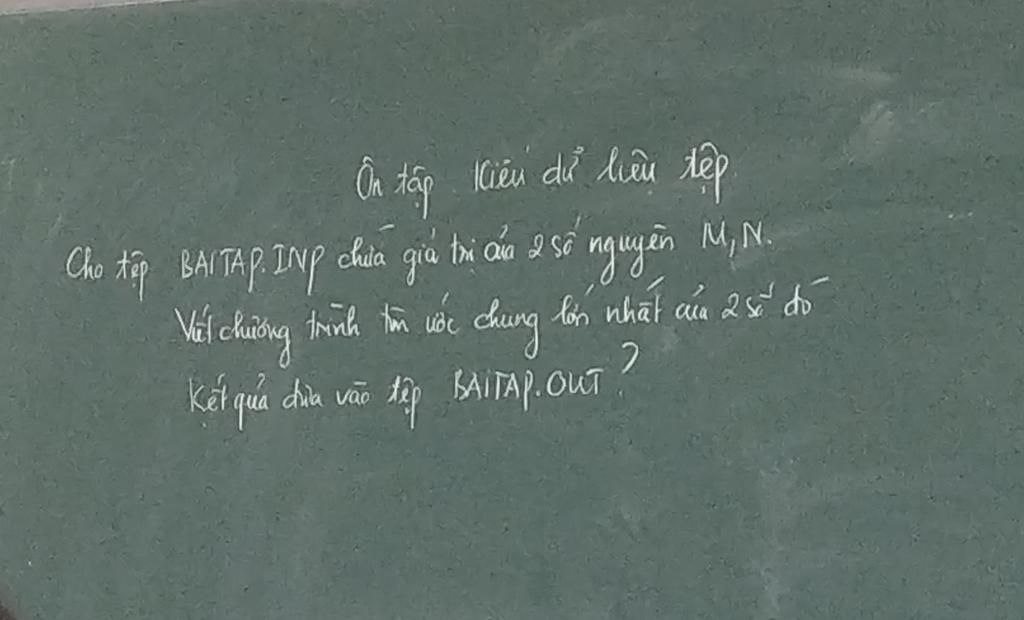 Ôn tập Kiểu dữ liệu tệp
Cho tệp BAITAP.INP chứa giá trị của 2 số nguyên M,N.
Viết chương trình tìm ước chung lớn nhất của 2 số đó
Kết quả đưa vào tệp BAITAP.OUT?